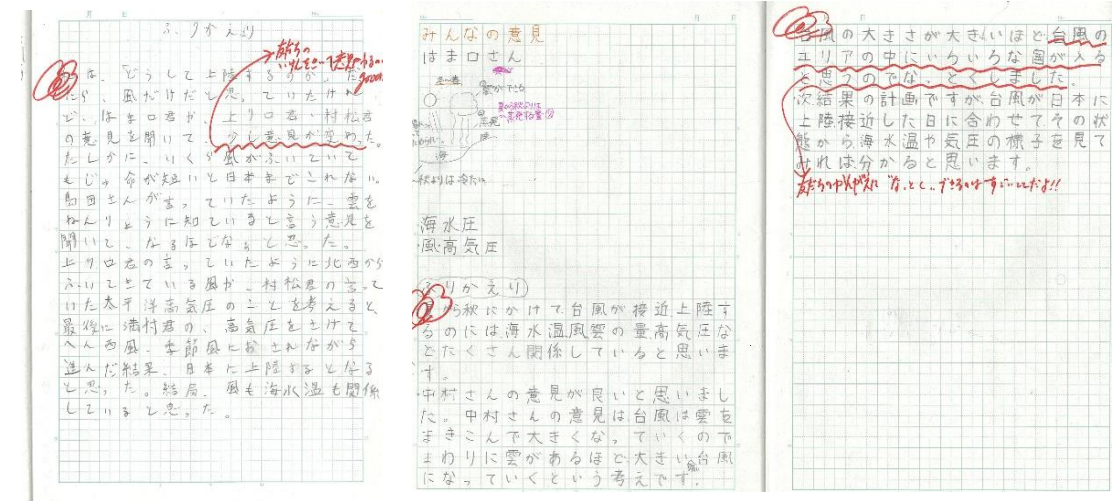 ふりかえり
は、「どうして上陸するのか。」だ
たら、風だけだと思っていたけれ
ど、はま口君が、上ノ口君・村松君
の意見を聞いて、少し意見が変わった。
たしかに、いくら風がふいていて
もじゅ命が短いと日本までこれない。
島田さんが言っていたように、雲を
ねんりょうに知ていると言う意見を
聞いて、なるほどなぁと思った。
上ノ口君の言っていたように北西から
ふいてきている風が、村松君の言って
いた太平洋高気圧のことを考えると、
最後に満村君の、高気圧をさけて
へん西風、季節風におされながら
進んだ結果、日本に上陸するとなる
と思った。結局、風も海水温も関係
していると思った。
友だちの
みんなの意見
はま口さん
雲ができる
蒸発
海
秋よりは冷たい
海水圧
・風・高気圧
ふりかえり
から秋にかけて、台風が接近上陸す
るのには海水温風雲の量高気圧な
どたくさん関係していると思いま
す。
中村さんの意見が良いと思いまし
た。中村さんの意見は台風は雲を
まきこんで大きくなっていくので
まわりに雲があるほど大きい台風
になっていくという考えです。
台風の大きさが大きいほど台風の
エリアの中にいろいろな国が入る
と思うのでなっとくしました。
次結果の計画ですが台風が日本に
上陸接近した日に合わせてその状
態から海水温や気圧の様子を見て
みれば分かると思います。
友だちのかんがえに"なっとく"できるのはすごいことだよ!!